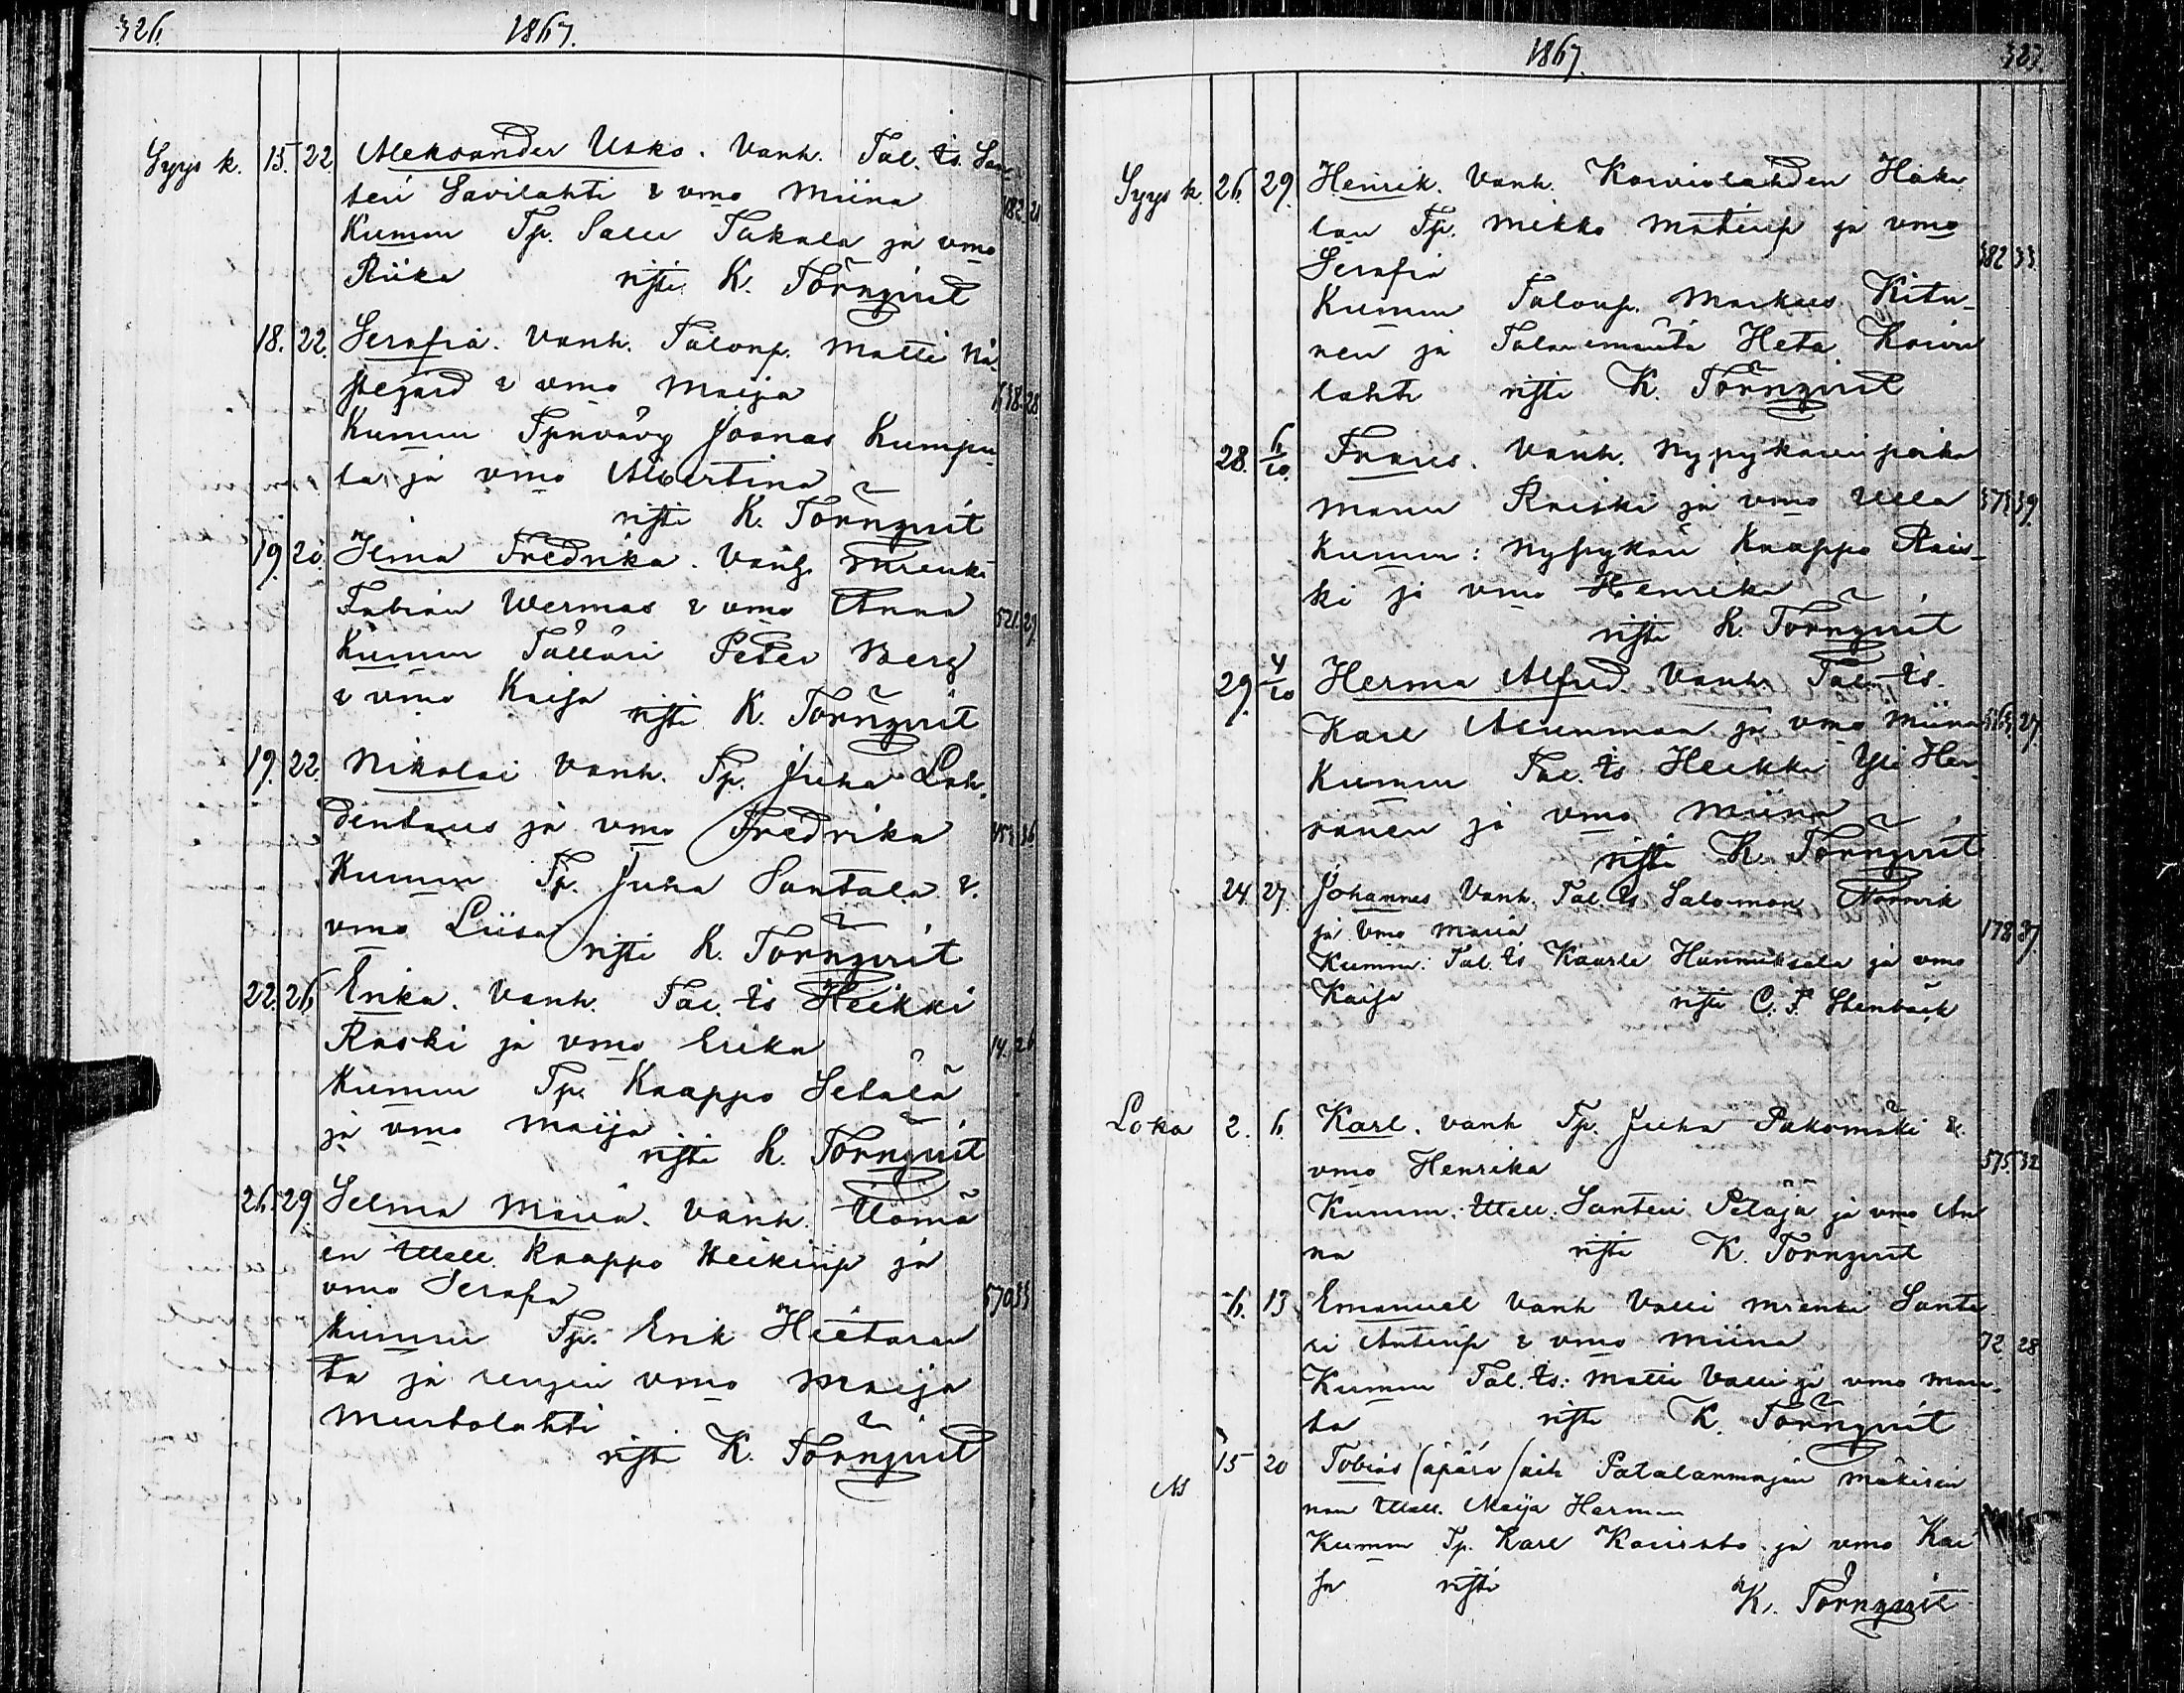 326.
1867.
Syys k. 15. 22. Aleksander Usko. Vanh. Tal. is. San-
teri Savilahti & vmo Miina 182 21
Kumm Tp. Salu Takala ja vmo
Riika risti K. Törnqvist
18. 22. Serafia. Vanh. Talonp. Matti Nä-
segård & vmo Maija 28
Kumm Tpnvävy Joonas Kumpu-
la ja vmo Albertina
risti K. Törnqvist
19. 20. Ilma Fredrika. Vanh. Mrenki
Fabian Wermas & vmo Anna 521. 29.
Kumm Tålläri Peter Berg
& vmo Kaisa risti K. Törnqvist
19. 22. Nikolai Vanh. Tp. Juha Lah-
dentaus ja vmo Fredrika 36
Kumm Tp. Juha Santala &
vmo Liisa risti K. Törnqvist
22. 26 Erika. Vanh. Tal. is Heikki
Raski ja vmo Erika 14. 26
Kumm Tp. Kaappo Setälä
ja vmo Maija
risti K. Törnqvist
26. 29. Selma Maria. Vanh.
en Itsell. Kaappo Heikinp ja
vmo Serafia 570 33
Kumm Tp. Erik Hietaran
ta ja rengin vmo Maija
Murtolahti
risti K. Törnqvist
1867.
327.
Syys k. 26. 29. Henrik. Vanh. Koiviolahden Haka-
lan Tp. Mikko Matinp ja vmo
Serafia 382 33.
Kumm Talonp. Markus Kitu-
nen ja Talonemäntä Heta Koivu
lahti risti K. Törnqvist
28. 6/10. Frans. Vanh. Nypykäuripoika
Manu Raiski ja vmo Ulla 39.
Kumm: Nypykäu Kaappo Rais-
ki ja vmo Henrika
risti K. Törnqvist
29. 4/10 Herma Alfred. Vanh. Tal. is.
Karl Asunmaa ja vmo Miina 27.
Kumm Tal. is Heikki Yli Her-
ranen ja vmo Miina
risti K. Törnqvist
24. 27. Johannes Vanh. Tal. is Salomon Norrvik
ja vmo Maria 178 37
Kumm: Tal. is Kaarle Hannuksela ja vmo
Kaisa risti C. F. Stenbäck
Loka 2. 6. Karl. vanh Tp. Juha Pakomäki &
vmo Henrika 575 32
Kumm. Itsell. Santeri Petäjä ja vmo An
na risti K. Törnqvist
6. 13. Emanuel Vanh Valli mrenki Sante
ri Antinp & vmo Miina 72. 28
Kumm Tal. is. Matti Valli ja vmo Man-
ta risti K. Törnqvist
15 20 Tobias (äpärä) äiti Patalanmajan mäkisin
nan Itsell. Maija Herman
Kumm Tp. Karl Koivisto ja vmo Kai
sa risti K. Törnqvist